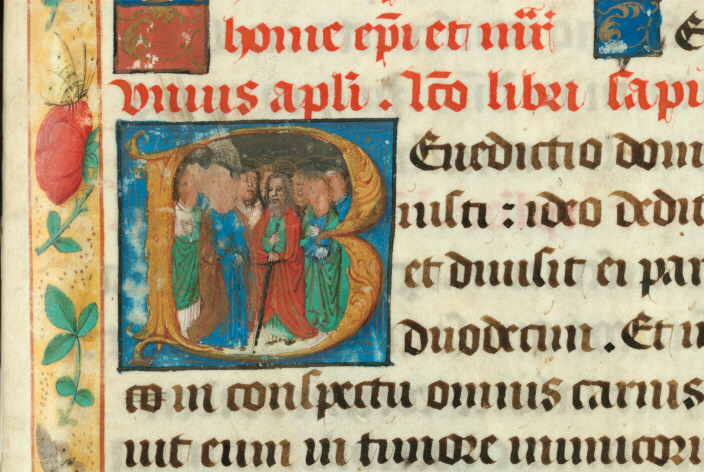 home ep̄i et mr̄is
vnius apl̄i . l̄co libri sapi
Benedictio dom
iusti : ideo dedit
et diuisit ei par
duodecim . Et i
co in conspectu omnis carnis
uit eum in timore inimicori